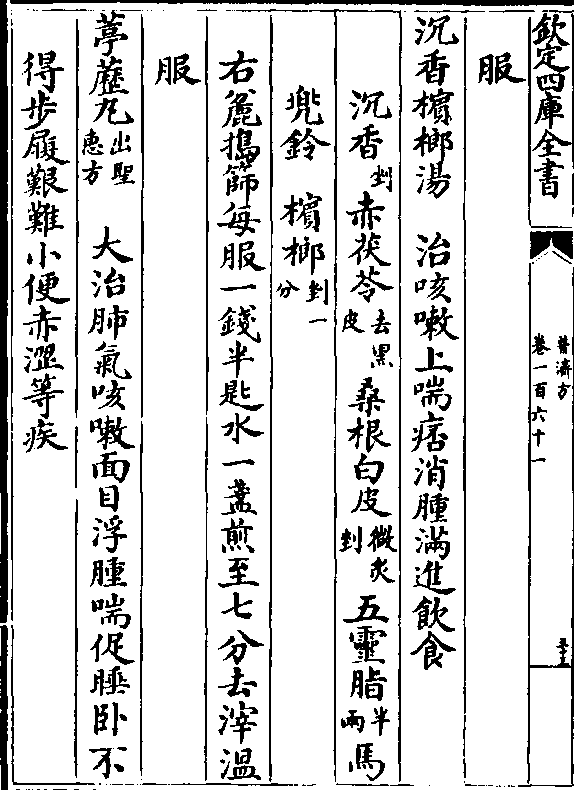 欽定四庫全書
普濟方
卷一百六十一
服
沉香檳榔湯 治咳嗽上喘痞消腫滿進飲食
沉香剉赤茯苓去黑皮桑根白皮微炙剉五靈脂半兩馬
兠鈴 檳榔剉一分
右麄搗篩每服一錢半匙水一盞煎至七分去滓溫
服
葶藶丸出聖惠方 大治肺氣咳嗽面目浮腫喘促睡卧不
得步履艱難小便赤澀等疾